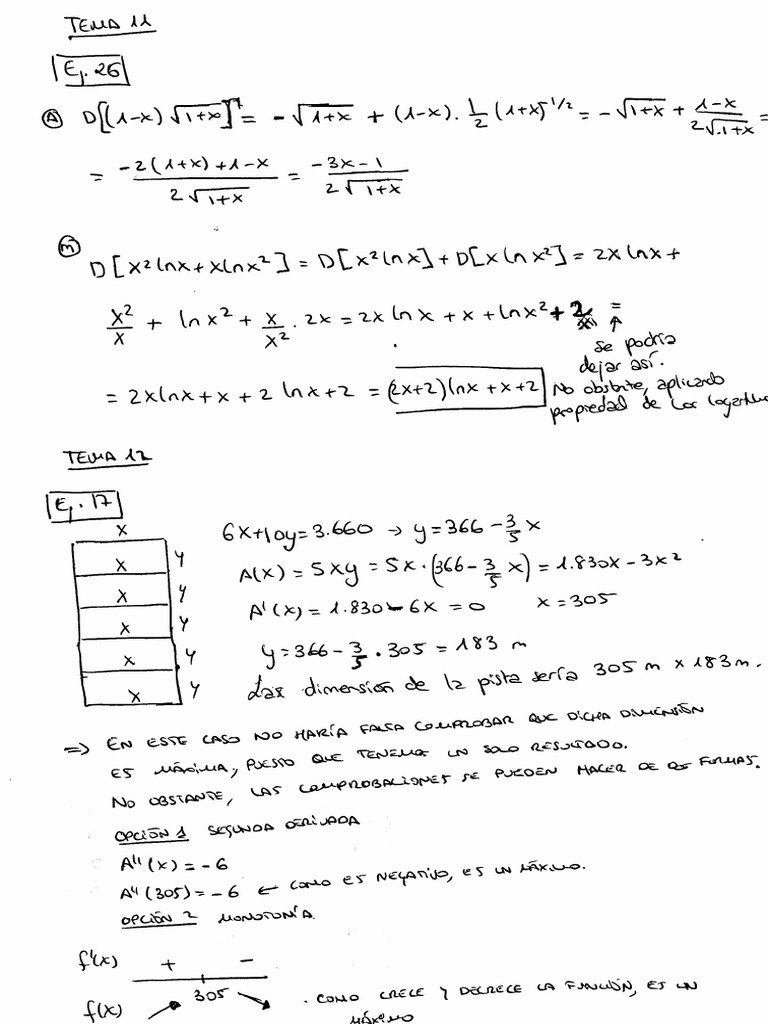 TEMA 11
Ej. 26
(A) D[(1-x) √1+x]' = - √1+x + (1-x) · 1/2 (1+x)^-1/2 = - √1+x + 1-x / 2√1+x =
= -2(1+x)+1-x / 2√1+x = -3x-1 / 2√1+x
(m) D[x² lnx + x lnx²] = D[x² lnx] + D[x lnx²] = 2x lnx +
x²/x + lnx² + x/x² · 2x = 2x lnx + x + lnx² + 2 =
se podría
dejar así.
= 2x lnx + x + 2 lnx + 2 = (2x+2) lnx + x + 2
No obstante, aplicando
propiedad de los
TEMA 12
Ej. 17
x
x y
x y
x y
x y
x y
6x+10y=3.660 → y=366 - 3/5 x
A(x) = 5xy = 5x·(366 - 3/5 x) = 1.830x - 3x²
A'(x) = 1.830 - 6x = 0 x = 305
y = 366 - 3/5 · 305 = 183 m
Las dimensión de la pista sería 305 m x 183 m.
=> EN ESTE CASO NO HARÍA FALTA COMPROBAR QUE DICHA DIMENSIÓN
ES MÁXIMA, PUESTO QUE TENEMOS UN SOLO RESULTADO.
NO OBSTANTE, LAS COMPROBACIONES SE PUEDEN HACER DE FORMAS.
OPCIÓN 1 SEGUNDA DERIVADA
A''(x) = -6
A''(305) = -6 ← COMO ES NEGATIVO, ES UN MÁXIMO.
OPCIÓN 2 MONOTONÍA.
f'(x) + -
305
f(x)
. COMO CRECE Y DECRECE LA FUNCIÓN, ES UN
MÁXIMO